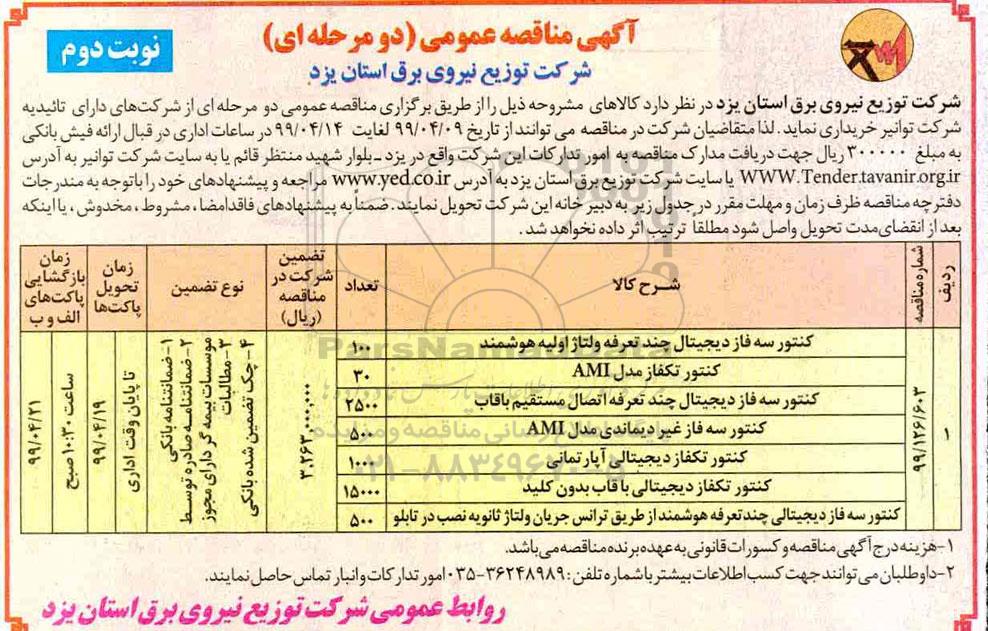 آگهی مناقصه عمومی (دو مرحله ای)
نوبت دوم
شرکت توزیع نیروی برق استان یزد
شرکت توزیع نیروی برق استان یزد در نظر دارد کالاهای مشروحه ذیل را از طریق برگزاری مناقصه عمومی دو مرحله ای از شرکت‌های دارای تائیدیه
شرکت توانیر خریداری نماید. لذا متقاضیان شرکت در مناقصه می توانند از تاریخ ۹۹/۰۴/۰۹ لغایت ۹۹/۰۴/۱۴ در ساعات اداری در قبال ارائه فیش بانکی
به مبلغ ۳۰۰۰۰۰ ریال جهت دریافت مدارک مناقصه به امور تدارکات این شرکت واقع در یزد ـ بلوار شهید منتظر قائم یا به سایت شرکت توانیر به آدرس
WWW.Tender.tavanir.org.ir یا سایت شرکت توزیع برق استان یزد به آدرس www.yed.co.ir مراجعه و پیشنهادهای خود را باتوجه به مندرجات
دفترچه مناقصه ظرف زمان و مهلت مقرر در جدول زیر به دبیرخانه این شرکت تحویل نمایند. ضمناً به پیشنهادهای فاقد امضا، مشروط، مخدوش، یا اینکه
بعد از انقضای مدت تحویل واصل شود مطلقاً ترتیب اثر داده نخواهد شد.
ردیف
شماره مناقصه
شرح کالا
تعداد
تضمین
شرکت در
مناقصه
(ریال)
نوع تضمین
زمان
تحویل
پاکت‌ها
زمان
بازگشایی
پاکت‌های
الف و ب
۱
۹۹/۱۲۶/۶۰۳
کنتور سه فاز دیجیتال چند تعرفه ولتاژ اولیه هوشمند ۱۰۰
کنتور تکفاز مدل AMI ۳۰
کنتور سه فاز دیجیتال چند تعرفه اتصال مستقیم باقاب ۲۵۰۰
کنتور سه فاز غیر دیماندی مدل AMI ۵۰۰
کنتور تکفاز دیجیتالی آپارتمانی ۱۰۰۰
کنتور تکفاز دیجیتالی با قاب بدون کلید ۱۵۰۰۰
کنتور سه فاز دیجیتالی چندتعرفه هوشمند از طریق ترانس جریان ولتاژ ثانویه نصب در تابلو ۵۰۰
۳.۲۶۳.۰۰۰.۰۰۰
۱-ضمانتنامه بانکی
۲-ضمانتنامه صادره توسط
موسسات بیمه گر دارای مجوز
۳-مطالبات
۴-چک تضمین شده بانکی
تا پایان وقت اداری
۹۹/۰۴/۱۹
ساعت ۱۰:۳۰ صبح
۹۹/۰۴/۲۱
۱-هزینه درج آگهی مناقصه و کسورات قانونی به عهده برنده مناقصه می‌باشد.
۲-داوطلبان می‌توانند جهت کسب اطلاعات بیشتر با شماره تلفن: ۳۶۲۴۸۹۸۹-۰۳۵ امور تدارکات و انبار تماس حاصل نمایند.
روابط عمومی شرکت توزیع نیروی برق استان یزد
ParsNamadData
پایگاه اطلاع رسانی مناقصه و مزایده
۰۲۱-۸۸۳۴۹۶۷۰-۵